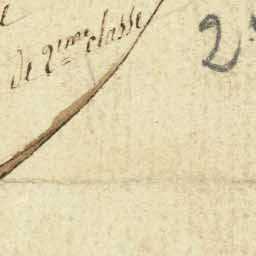 de 2eme classe
2